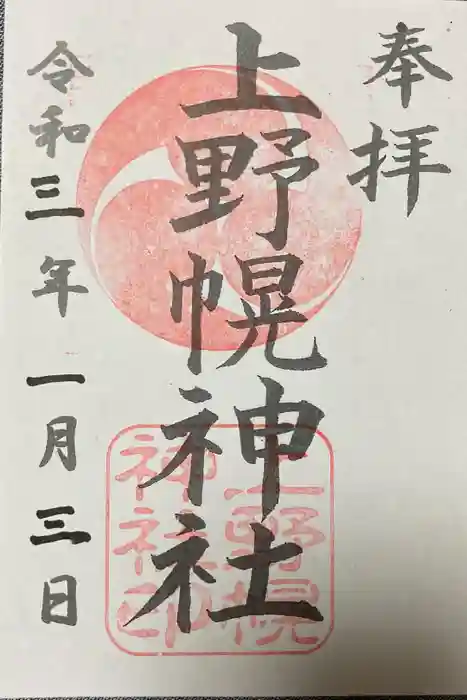 奉拝
上野幌神社
上野幌
神社印
令和三年一月三日